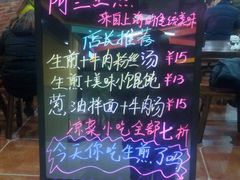 阿三生煎
来自上海的传统美味
店长推荐
生煎+牛肉粉丝汤 ¥15
生煎+美味小馄饨 ¥13
葱油拌面+牛肉汤 ¥15
凉菜小吃全部七折
今天你吃生煎了吗